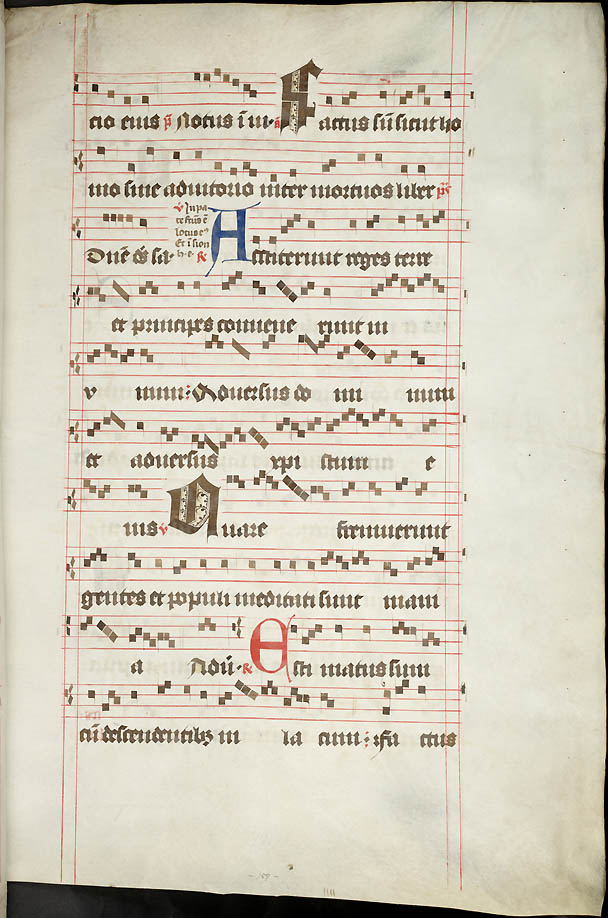 cio eius p̄ Notus ī iu. a Factus sū sicut ho
mo sine adiutorio inter mortuos liber p̄s
Dn̄e
℣ In pa
ce factus ē
locus eꝰ
Et ī sion
h. e. ℟ Astiterunt reges terre
et principes convene runt in
v num: Adversus do mi num
et adversus xp̄i stum e
ius ℣ Quare fremuerunt
gentes et populi meditati sunt inani
a Adv̄. ℟ Esti matus sum
cū descendentibꝫ in la cum: ⁊ fa ctus
159